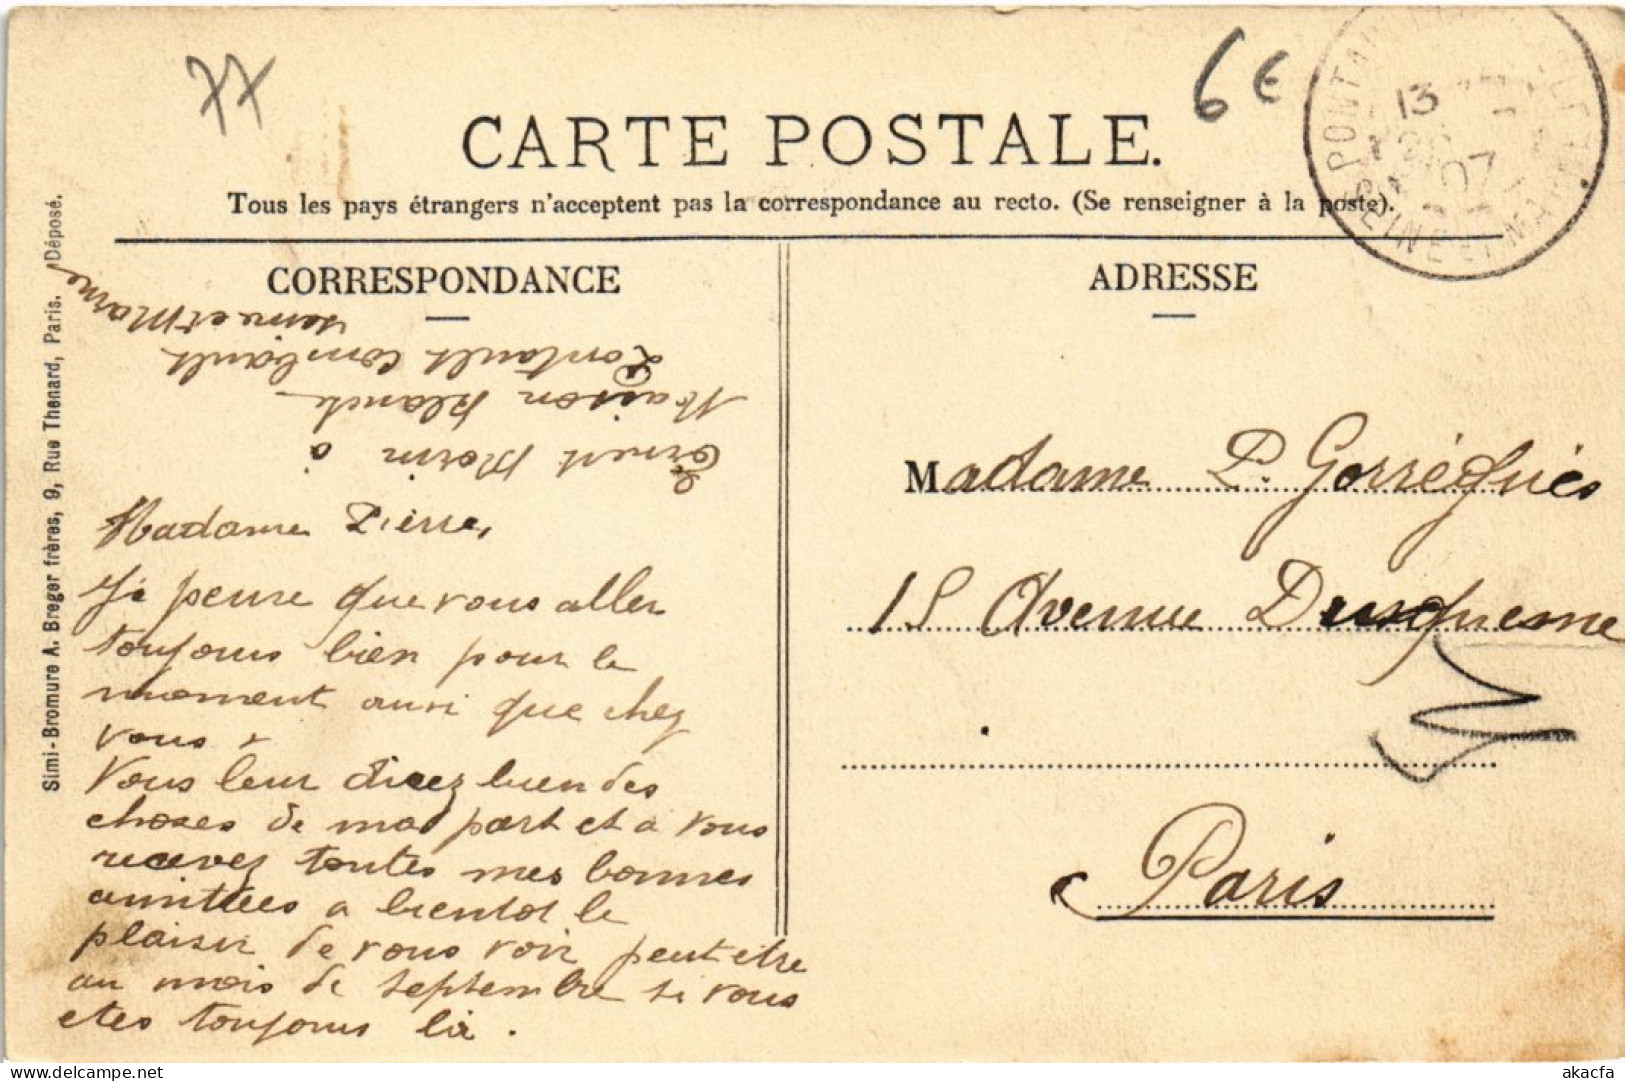 77
6€
CARTE POSTALE.
Tous les pays étrangers n'acceptent pas la correspondance au recto. (Se renseigner à la poste).
13
07
SEINE ET MARNE
CORRESPONDANCE
ADRESSE
Simi-Bromure A. Breger frères, 9, Rue Thenard, Paris. Déposé.
Ernest Morin à
Maison Blanche
Pontault Combault
Seine et Marne
Madame Pierre,
Je pense que vous aller
toujours bien pour le
moment aussi que chez
vous
Vous leur direz bien des
choses de ma part et a vous
recevez toutes mes bonnes
amitiees a bientot le
plaisir de vous voir peut etre
au mois de septembre si vous
etes toujours là.
Madame P. Gorréguès
15 Avenue Dusquesne
Paris
akacfa
www.delcampe.net